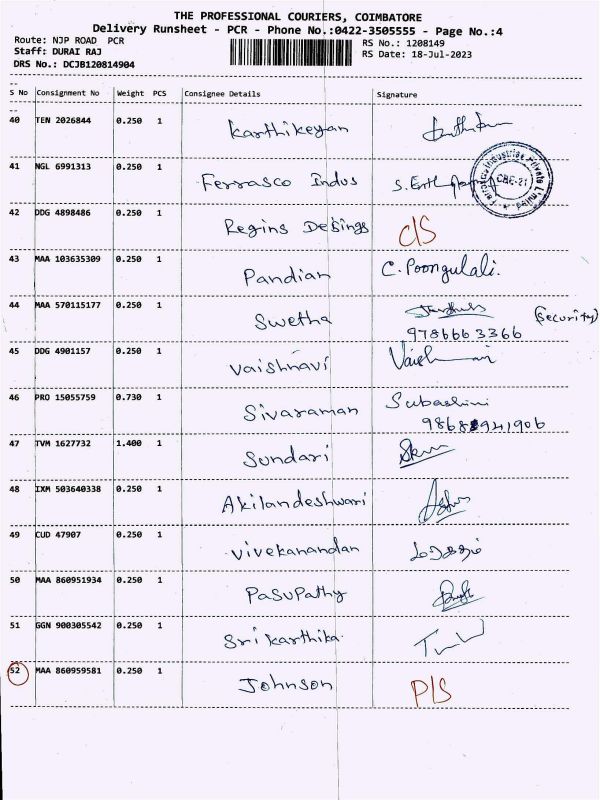 THE PROFESSIONAL COURIERS, COIMBATORE
Delivery Runsheet - PCR - Phone No.:0422-3505555 - Page No.:4
Route: NJP ROAD PCR RS No.: 1208149
Staff: DURAI RAJ RS Date: 18-Jul-2023
DRS No.: DCJB120814904
S No Consignment No Weight PCS Consignee Details Signature
40 TEN 2026844 0.250 1 Karthikeyan
41 NGL 6991313 0.250 1 Ferrasco Indus
CBE-21
42 DDG 4898486 0.250 1 Regins Desings C/S
43 MAA 103635309 0.250 1 Pandian C. Poongulali.
44 MAA 570115177 0.250 1 Swetha (Security)
9786663366
45 DDG 4901157 0.250 1 Vaishnavi
46 PRO 15055759 0.730 1 Sivaraman Subashini
47 TVM 1627732 1.400 1 Sundari
48 IXM 503640338 0.250 1 Akilandeshwari
49 CUD 47907 0.250 1 Vivekanandan
50 MAA 860951934 0.250 1 Pasupathy
51 GGN 900305542 0.250 1 Srikarthika
52 MAA 860959581 0.250 1 Johnson P/S